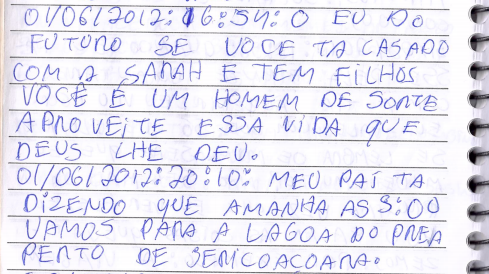 01/06/2012: 16:54: O EU DO
FUTURO SE VOCE TA CASADO
COM A SARAH E TEM FILHOS
VOCÊ É UM HOMEM DE SORTE
APROVEITE ESSA VIDA QUE
DEUS LHE DEU.
01/06/2012: 20:10: MEU PAI TA
DIZENDO QUE AMANHA AS 8:00
VAMOS PARA A LAGOA DO PREA
PERTO DE JERICOACOARA.